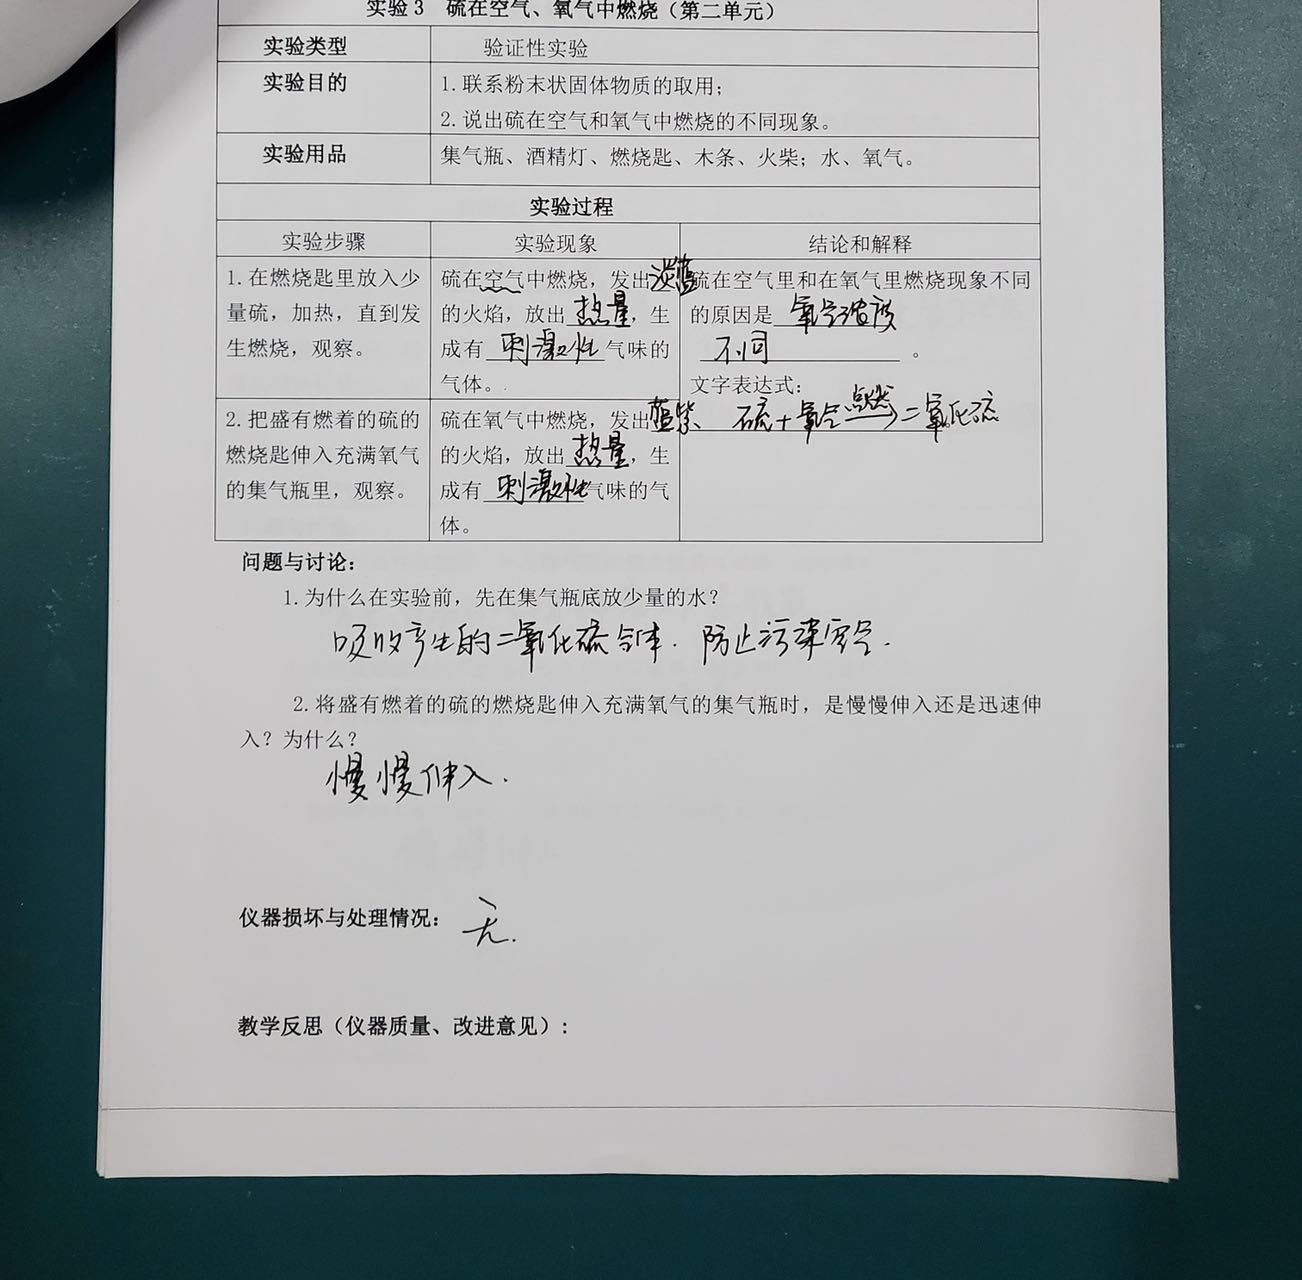 实验3 硫在空气、氧气中燃烧（第二单元）
实验类型 验证性实验
实验目的 1.联系粉末状固体物质的取用；
2.说出硫在空气和氧气中燃烧的不同现象。
实验用品 集气瓶、酒精灯、燃烧匙、木条、火柴；水、氧气。
实验过程
实验步骤 实验现象 结论和解释
1.在燃烧匙里放入少
量硫，加热，直到发
生燃烧，观察。
硫在空气中燃烧，发出淡蓝
的火焰，放出热量，生
成有刺激性气味的
气体。
硫在空气里和在氧气里燃烧现象不同
的原因是氧气浓度
不同。
文字表达式：
硫+氧气点燃→二氧化硫
2.把盛有燃着的硫的
燃烧匙伸入充满氧气
的集气瓶里，观察。
硫在氧气中燃烧，发出蓝紫
的火焰，放出热量，生
成有刺激性气味的气
体。
问题与讨论：
1.为什么在实验前，先在集气瓶底放少量的水？
吸收产生的二氧化硫气体.防止污染空气.
2.将盛有燃着的硫的燃烧匙伸入充满氧气的集气瓶时，是慢慢伸入还是迅速伸
入？为什么？
慢慢伸入.
仪器损坏与处理情况： 无.
教学反思（仪器质量、改进意见）：